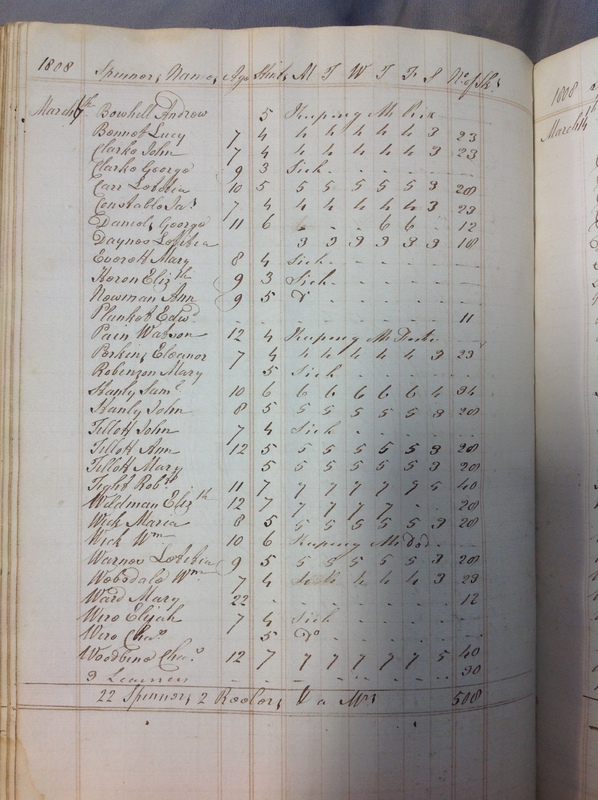 1808 Spinners Names Age Stint M T W T F S No of Sks
March 7th Bowhill Andrew 5 Keeping
Bennet Lucy 7 4 4 4 4 4 4 3 23
Clarke John 7 4 4 4 4 4 4 3 23
Clarke George 9 3 Sick
Carr Lobitia 10 5 5 5 5 5 5 3 28
Constable Jas 7 4 4 4 4 4 4 3 23
Daniels George 11 6 6 - - 6 6 - 12
Daynes Lobitia 3 3 3 3 3 3 18
Everett Mary 8 4 Sick
Heron Elizth 9 3 Sick
Newman Ann 9 5 Do
Plunket Edwd 11
Pain Watson 12 4 Keeping
Perkins Eleanor 7 4 4 4 4 4 4 3 23
Robenson Mary 5 Sick
Stanly Saml 10 6 6 6 6 6 6 4 34
Stanly John 8 5 5 5 5 5 5 3 28
Tillott John 7 4 Sick
Tillott Ann 12 5 5 5 5 5 5 3 28
Tillott Mary 5 5 5 5 5 5 3 28
Tight Robt 11 7 7 7 7 7 7 5 40
Wildman Elizth 12 7 7 7 7 7 - - 28
Wick Maria 8 5 5 5 5 5 5 3 28
Wick Wm 10 6 Keeping
Warnes Lobitia 9 5 5 5 5 5 5 3 28
Wobsdale Wm 7 4 4 4 4 4 4 3 23
Ward Mary 22 12
Wire Elijah 7 4 Sick
Wire Chas 5 Do
Woodbine Chas 12 7 7 7 7 7 7 5 40
3 Learners 30
22 Spinners 2 Reelers & a Mrs 508
1808
March 14